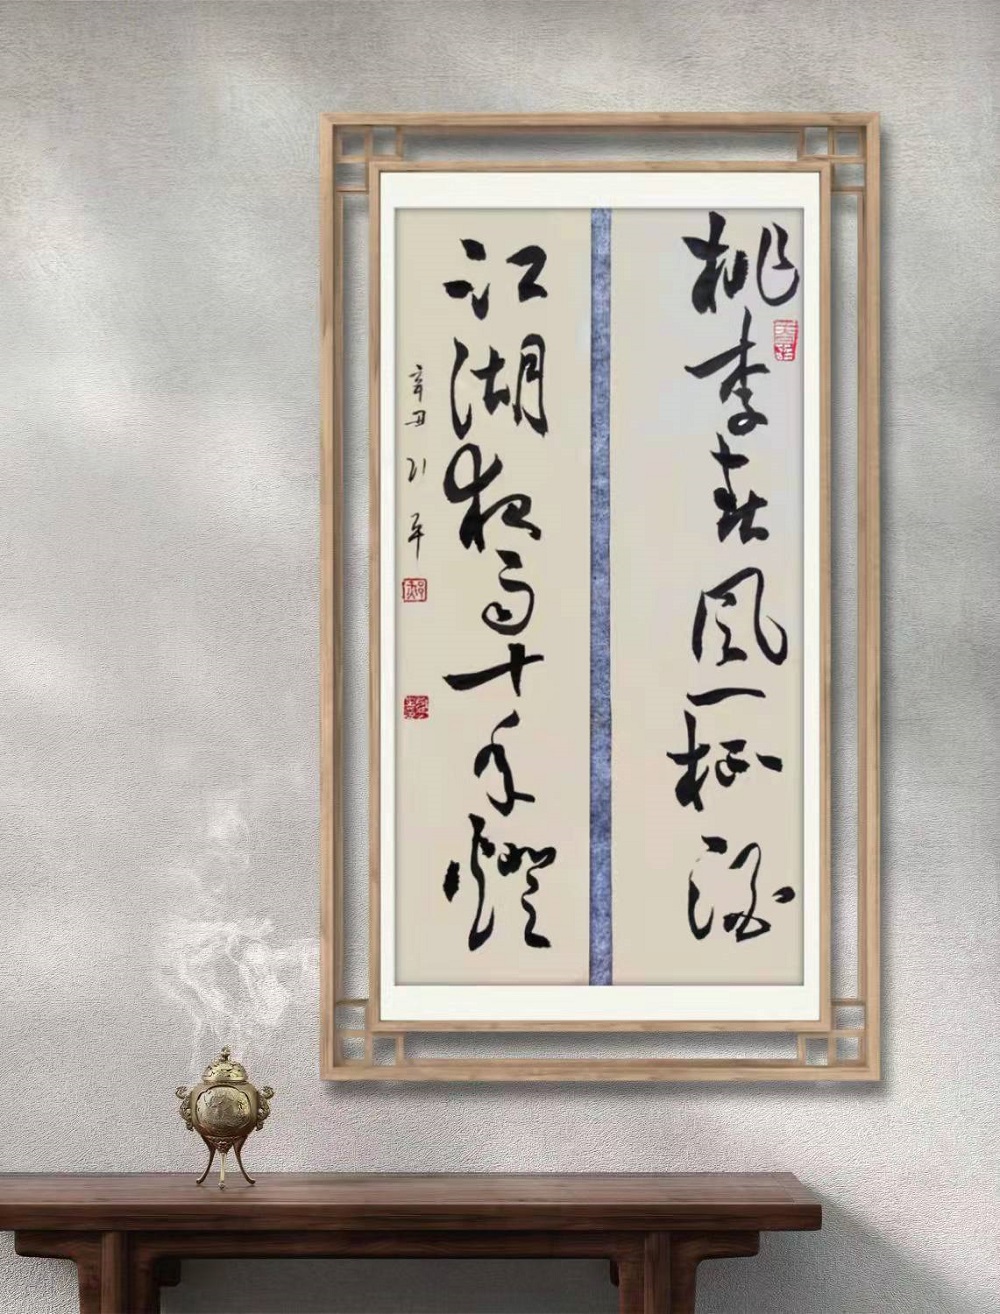 桃李春風一杯酒
江湖夜雨十年燈
辛丑